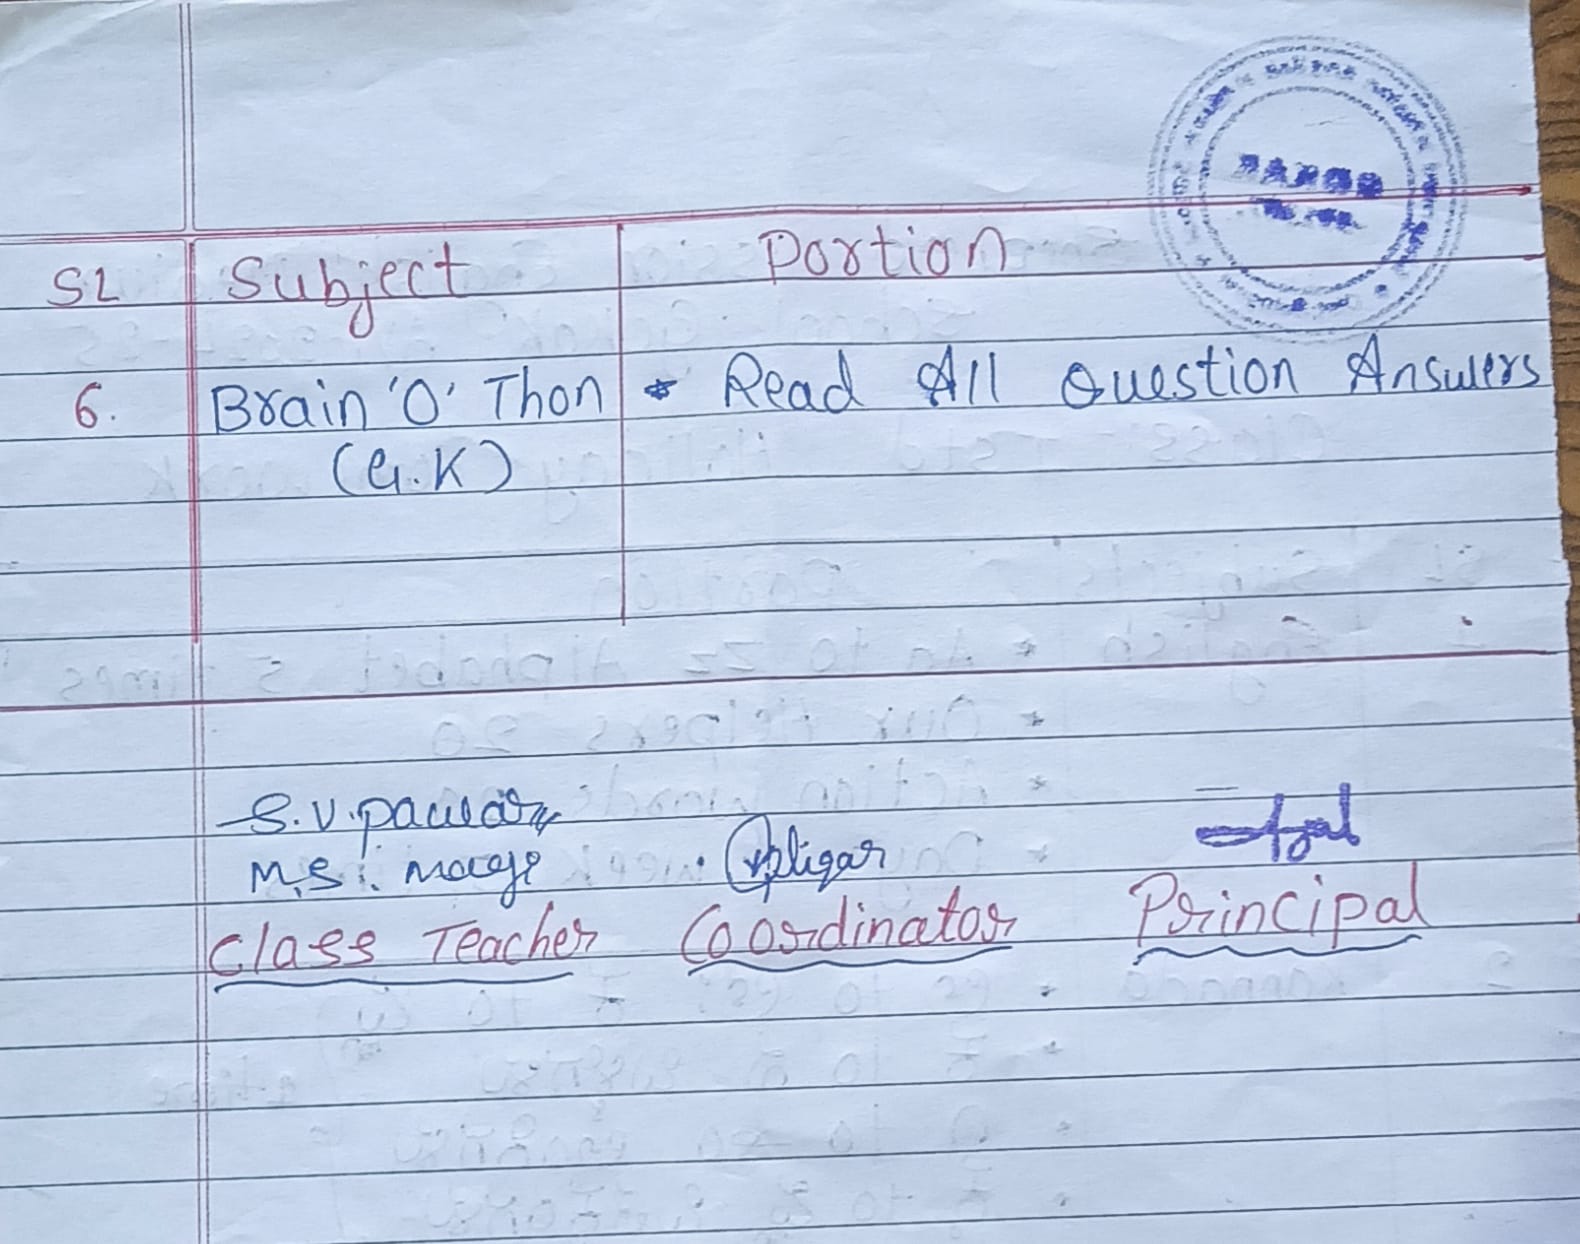 SL Subject Portion
6. Brain 'O' Thon * Read All Question Answers
(G.K)
S.V.pawar
M.S.
Class Teacher Coordinator Principal